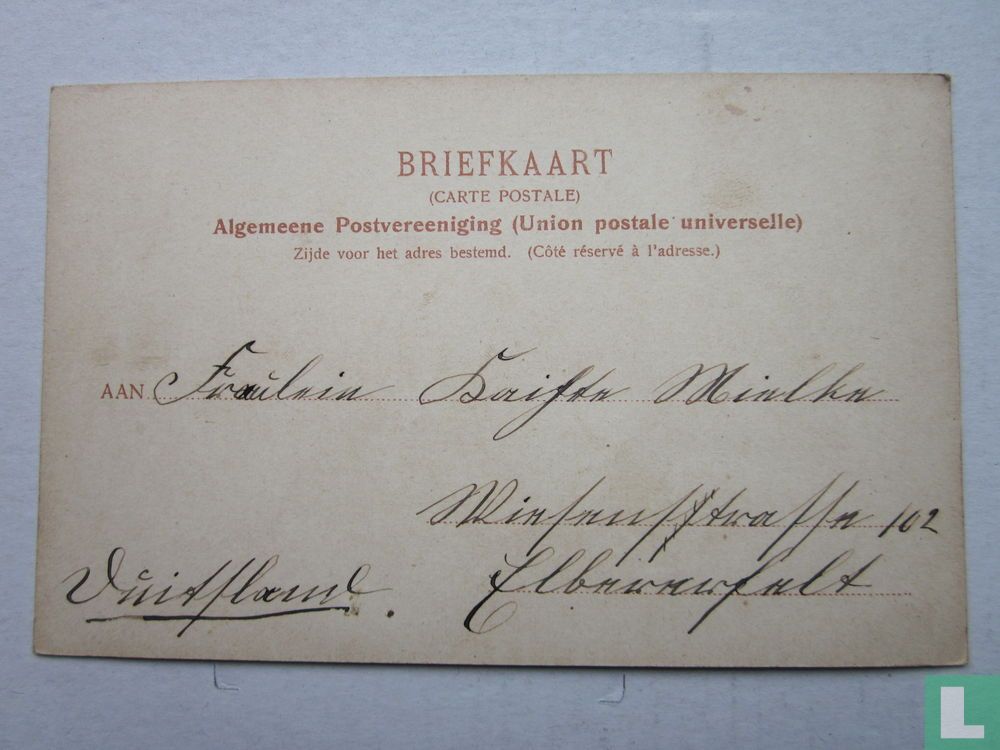 BRIEFKAART
(CARTE POSTALE)
Algemeene Postvereeniging (Union postale universelle)
Zijde voor het adres bestemd. (Côté réservé à l'adresse.)
AAN Fraülein Mielke
Wiesenstrasse 102
Duitsland. Elbererfelt
L